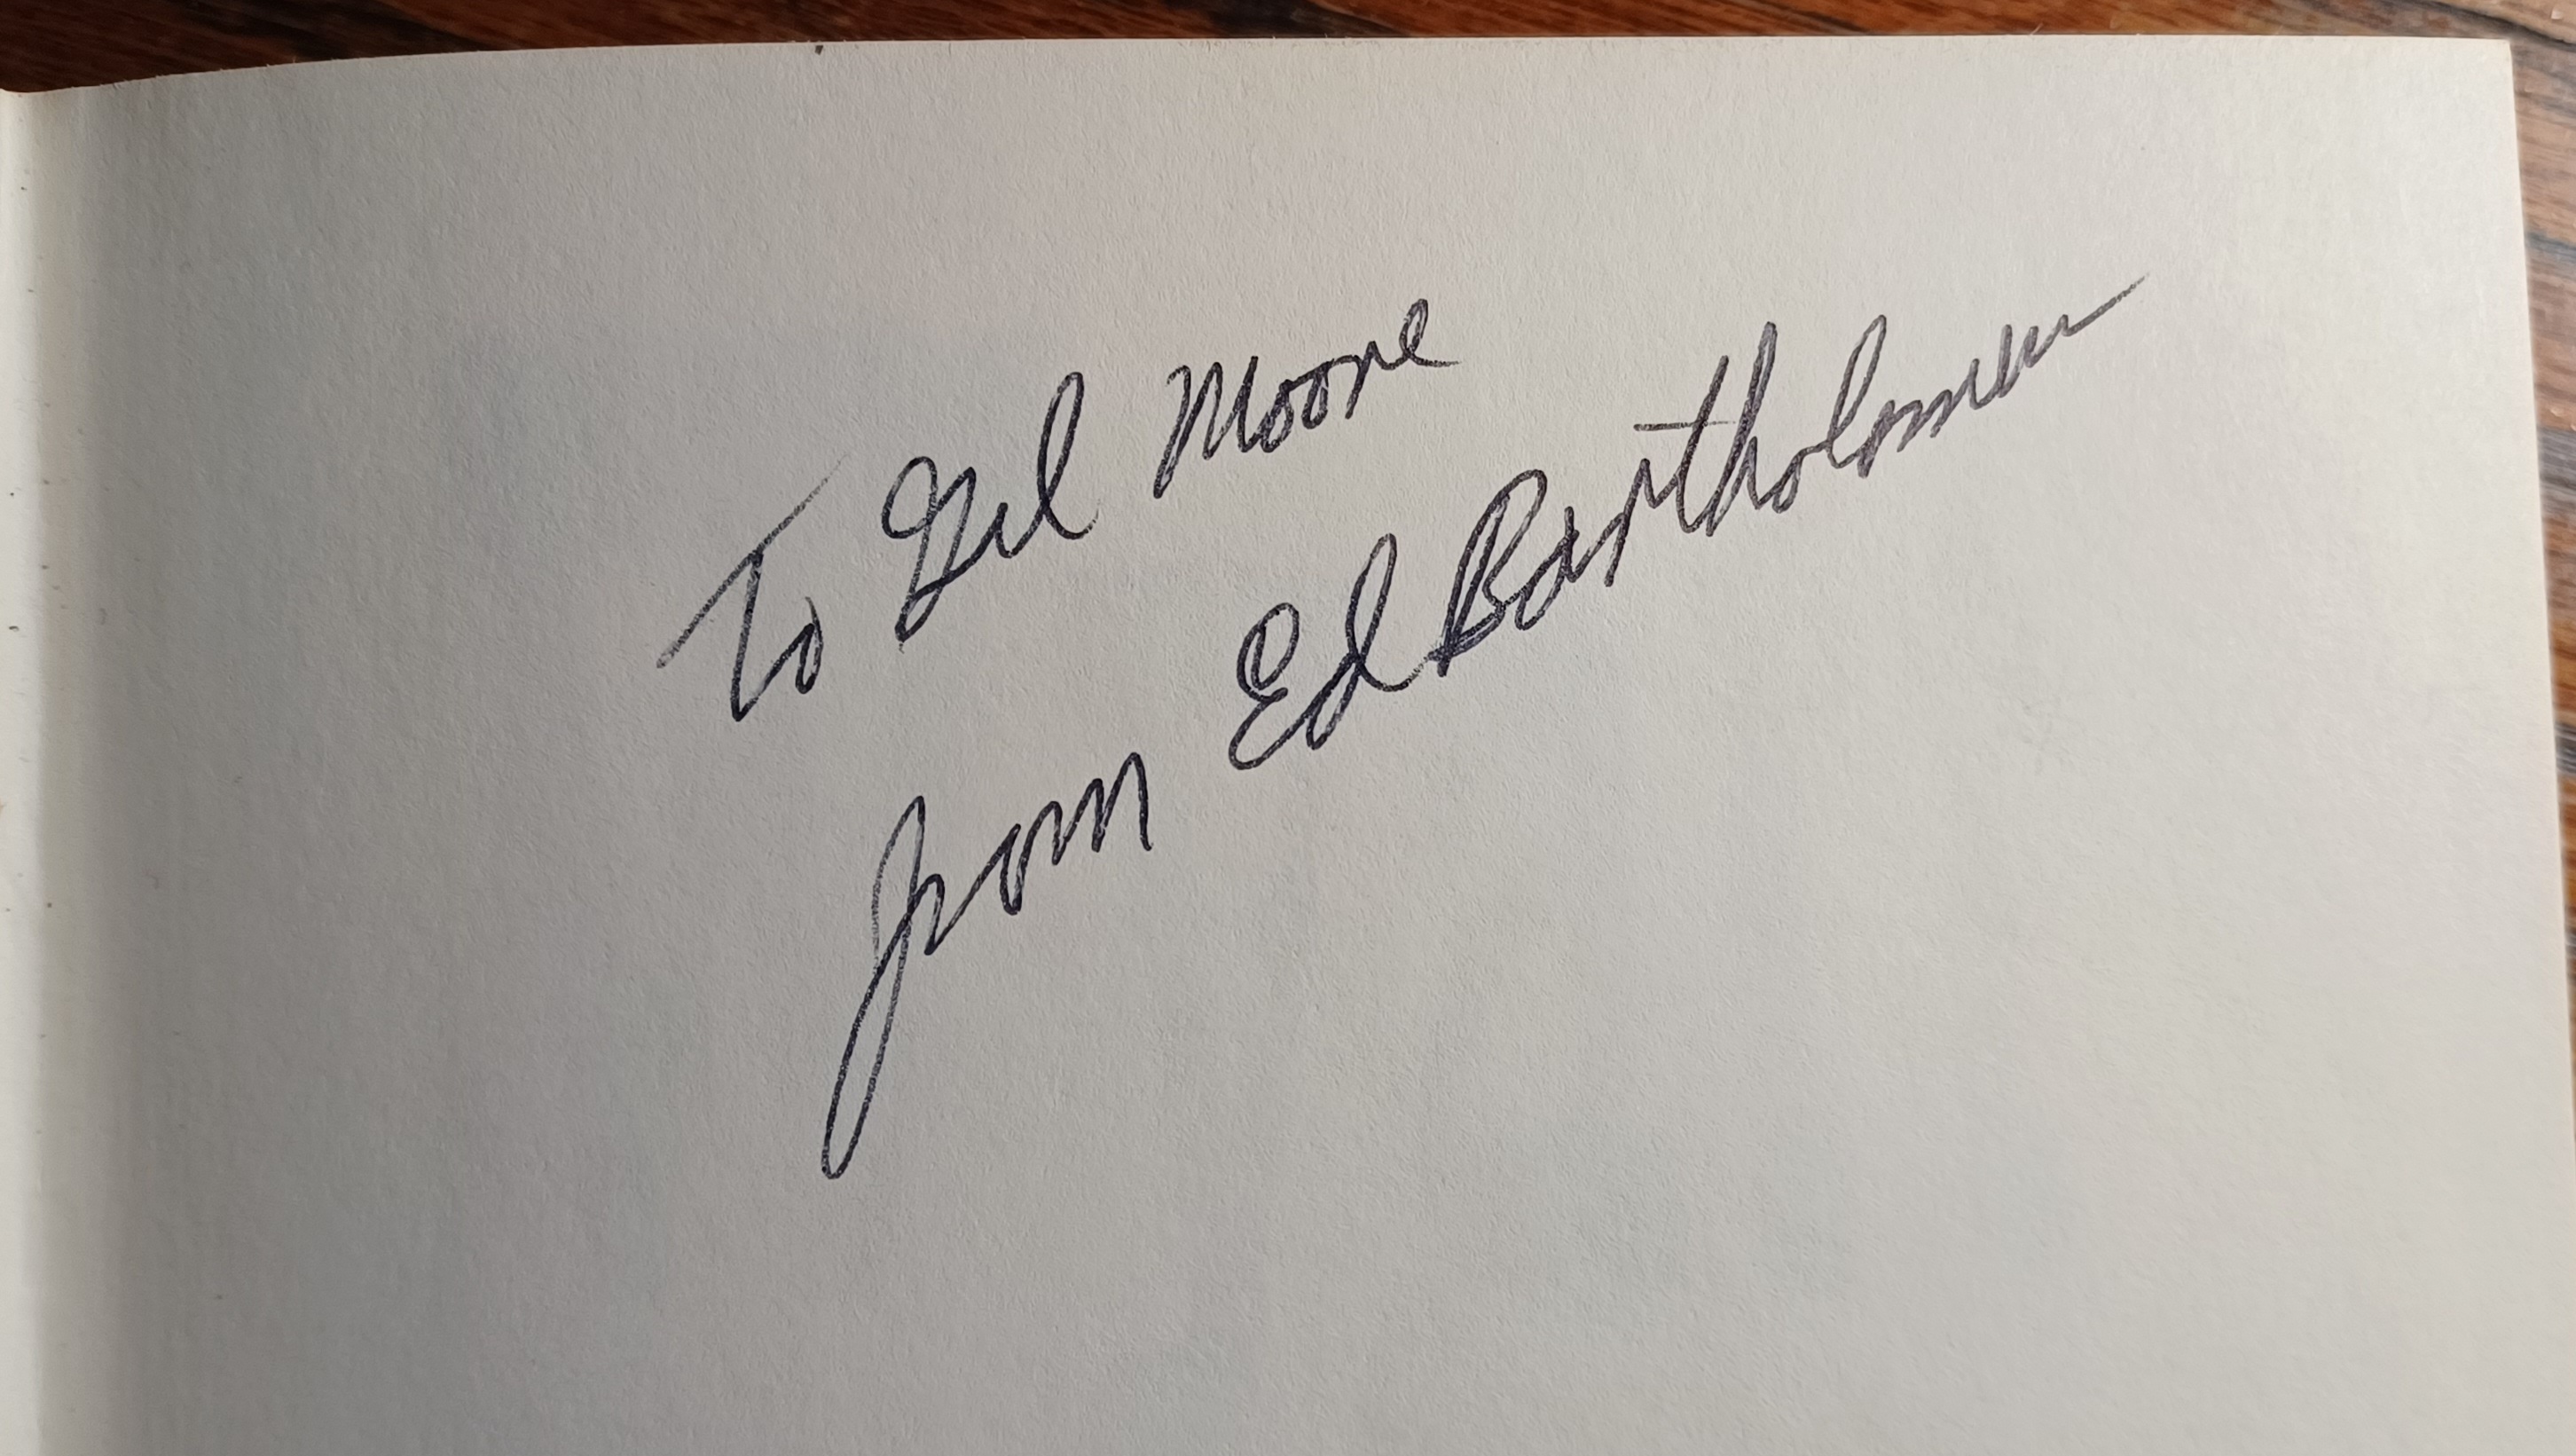 To Gil Moore
from Ed Bartholomew